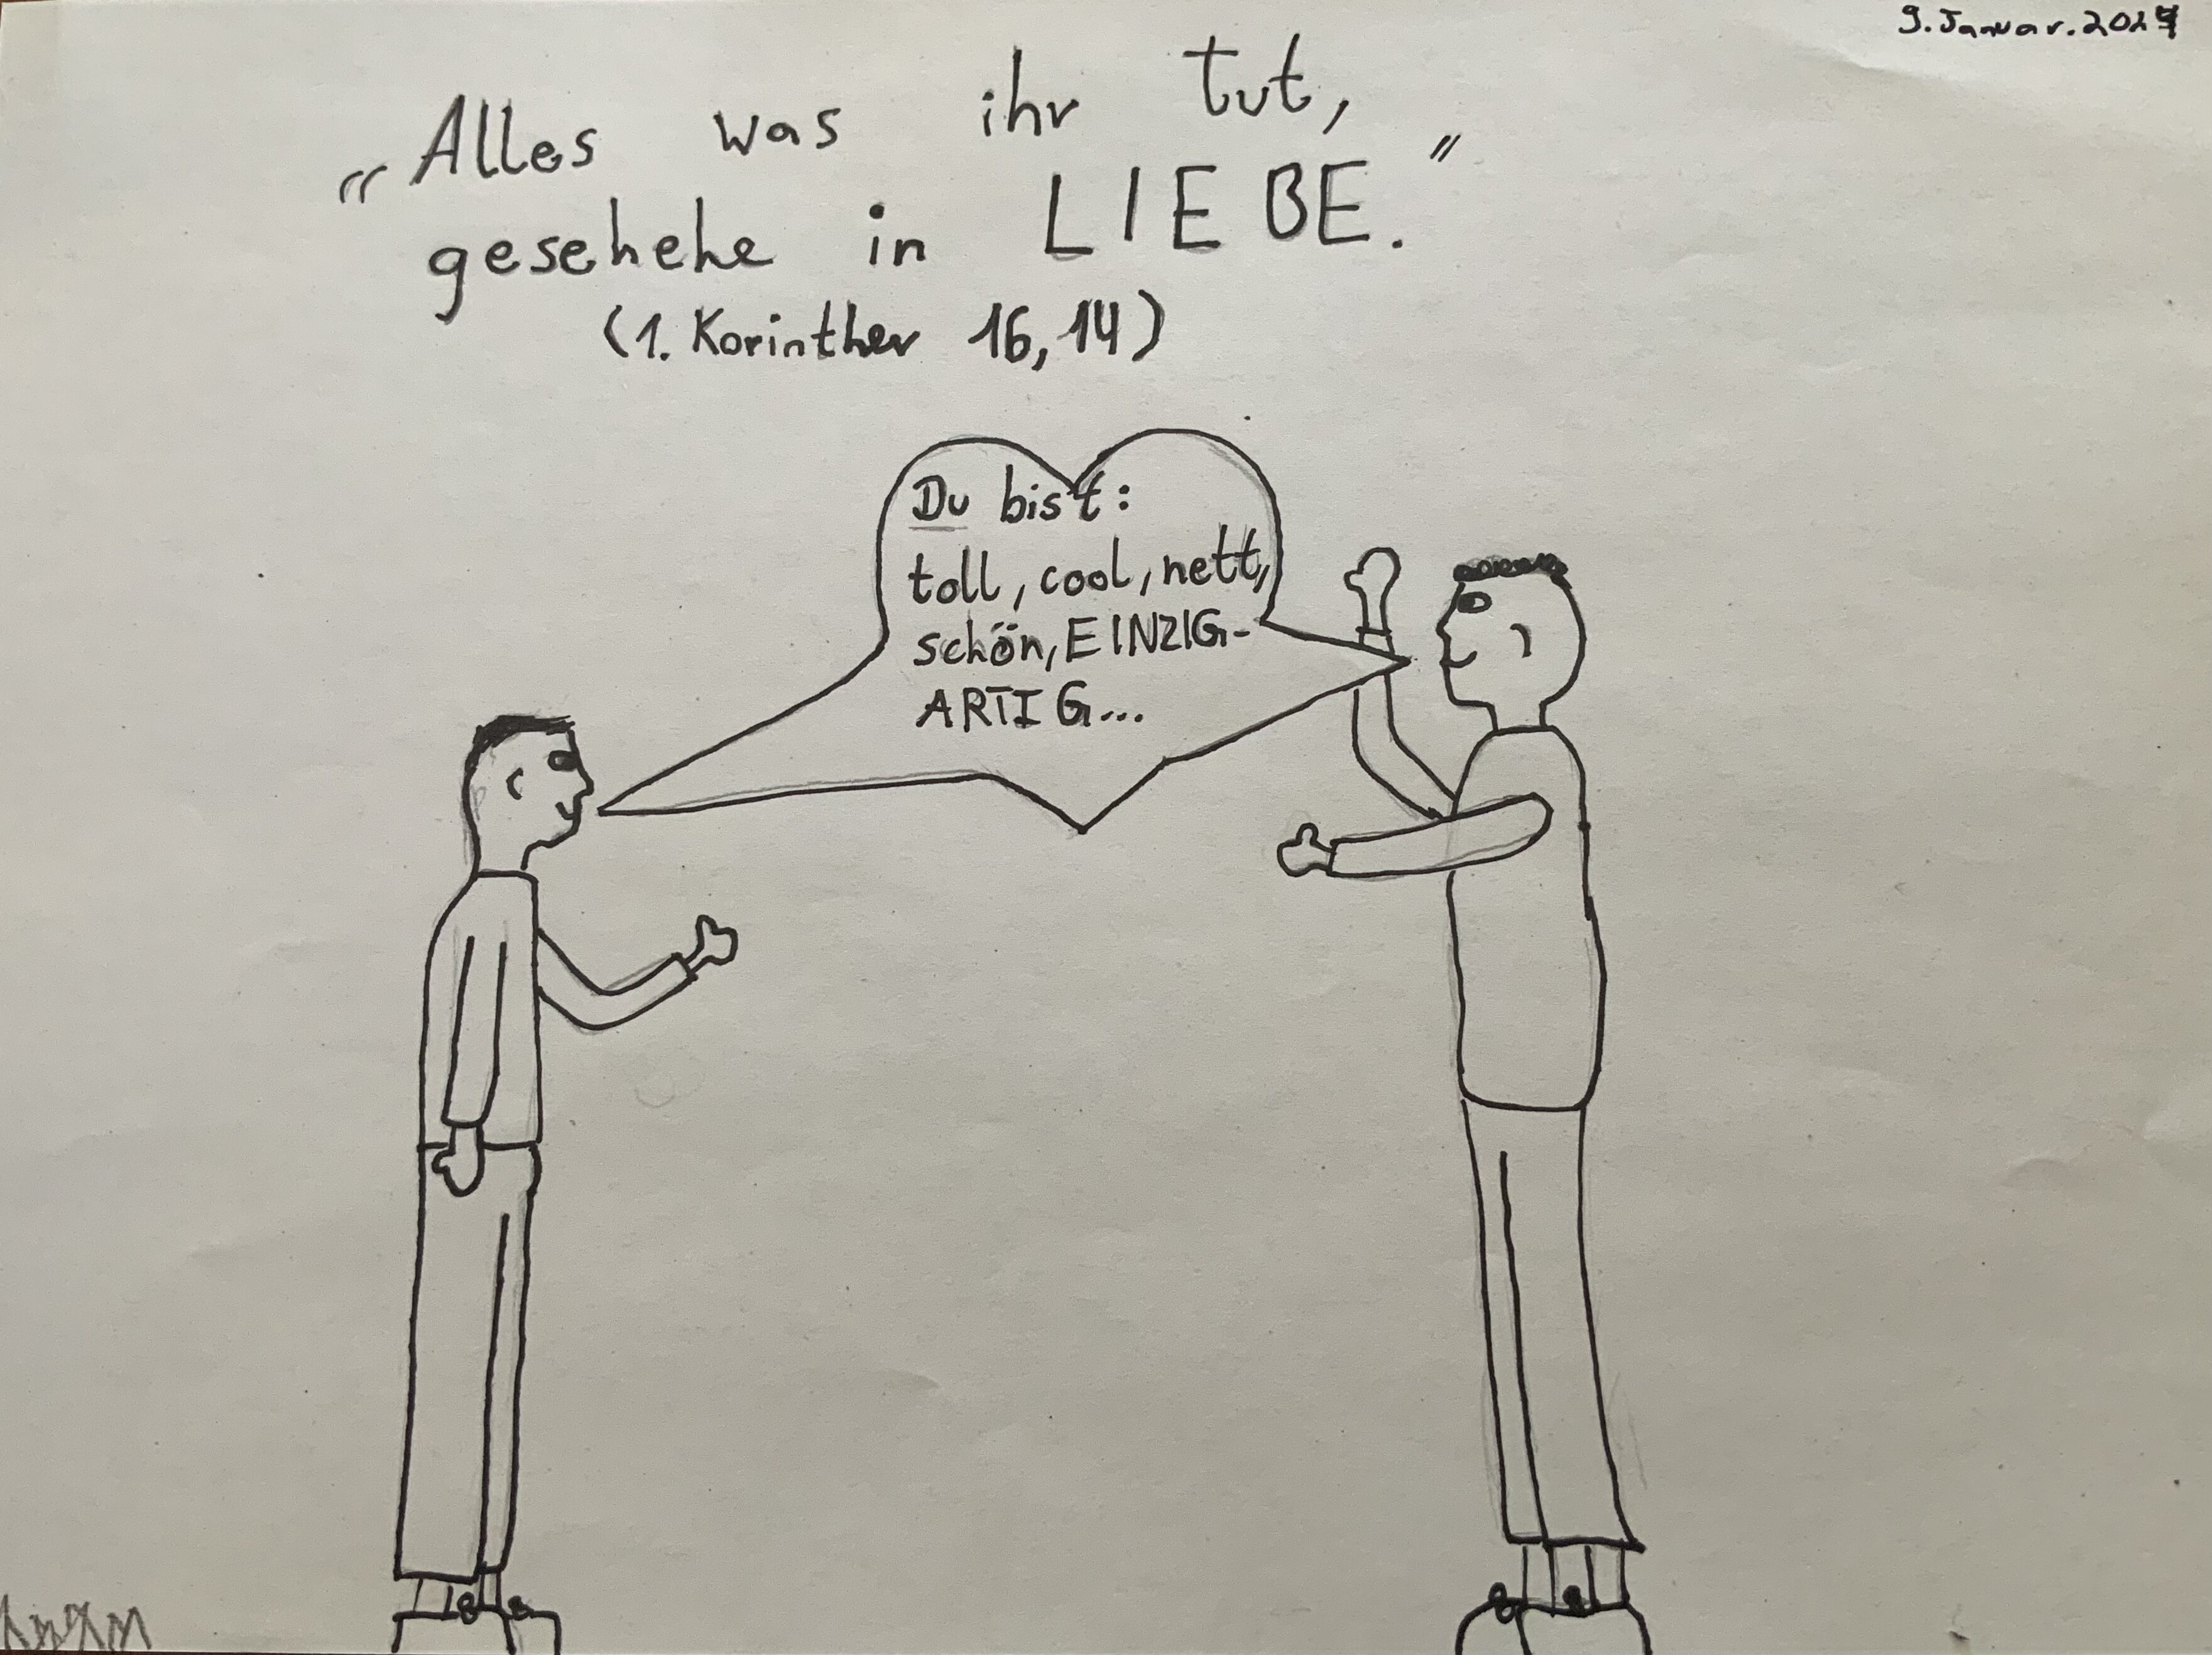 9. Januar. 2024
„Alles was ihr tut,
geschehe in LIEBE."
(1. Korinther 16,14)
Du bist:
toll, cool, nett,
schön, EINZIG-
ARTIG...